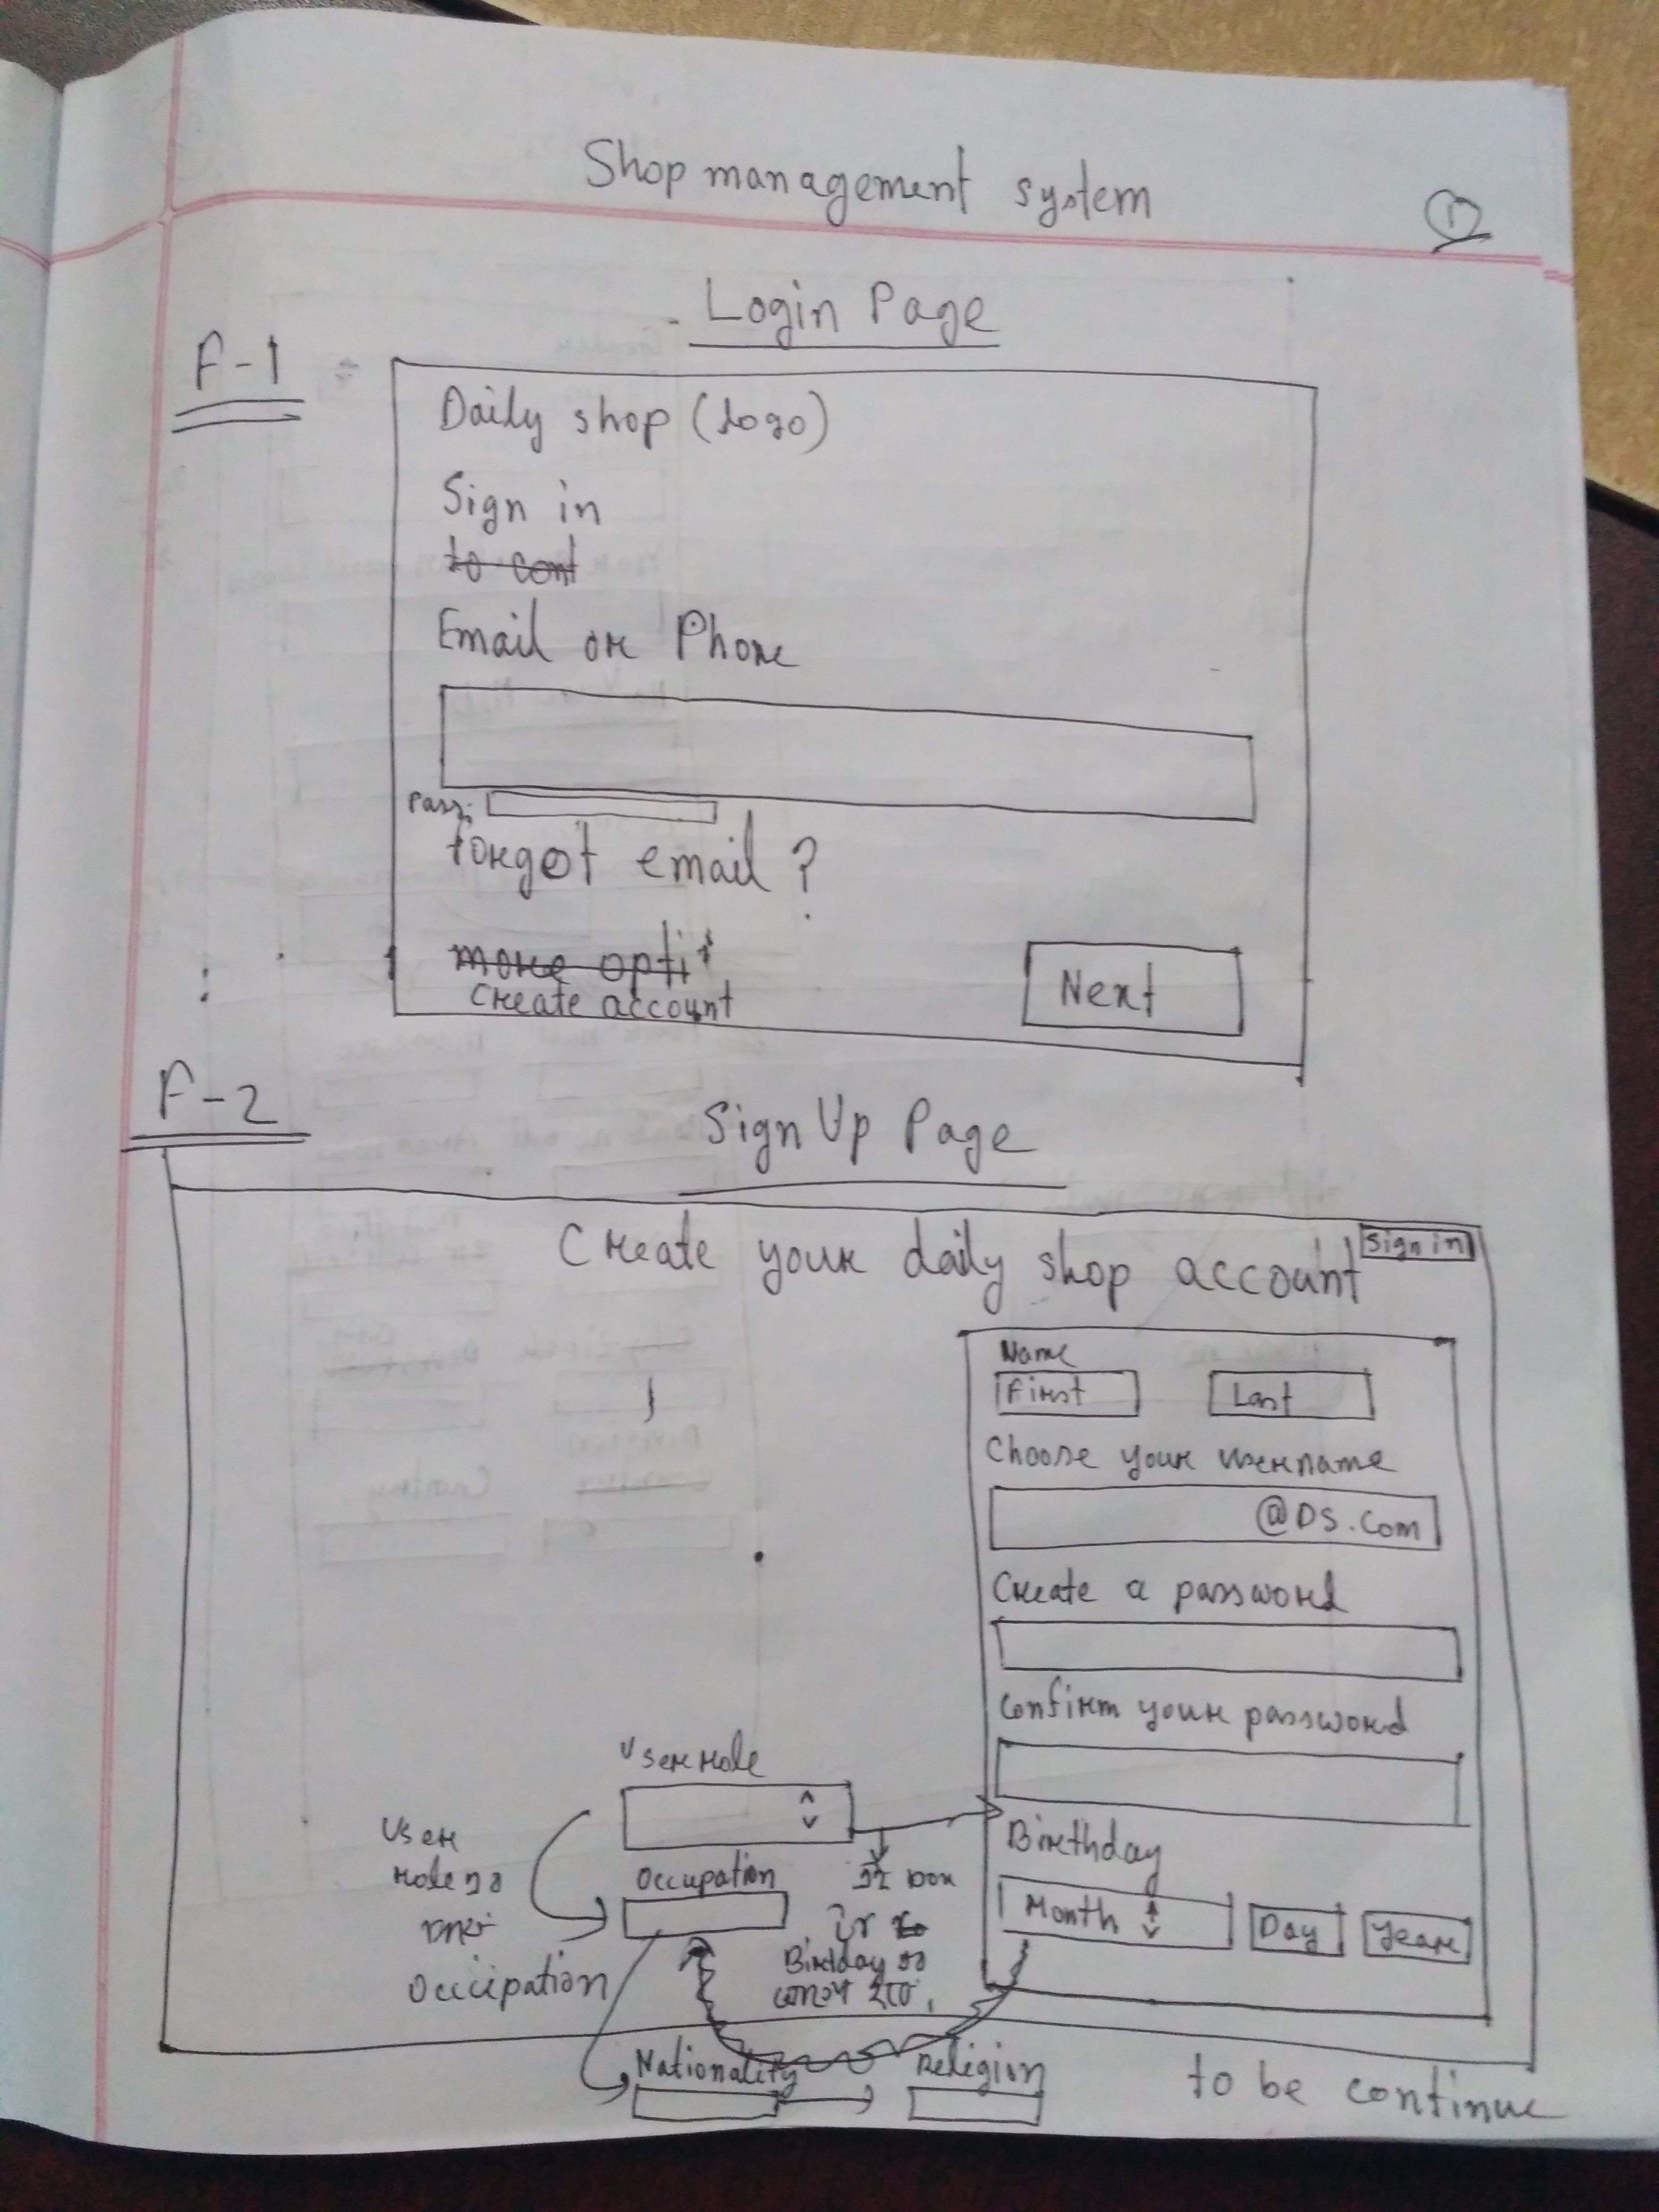 Shop management system
1
Login Page
F-1
Daily shop (logo)
Sign in
to cont
Email or Phone
Pass:
forgot email ?
more opti
Create account
Next
F-2
Sign Up Page
Create your daily shop account
Sign in
Name
First
Last
Choose your username
@DS.Com
Create a password
Confirm your password
User role
Birthday
User
role
Occupation
box
Month
Day
Year
Birtday
Occcipation
Nationality
Religion
to be continue